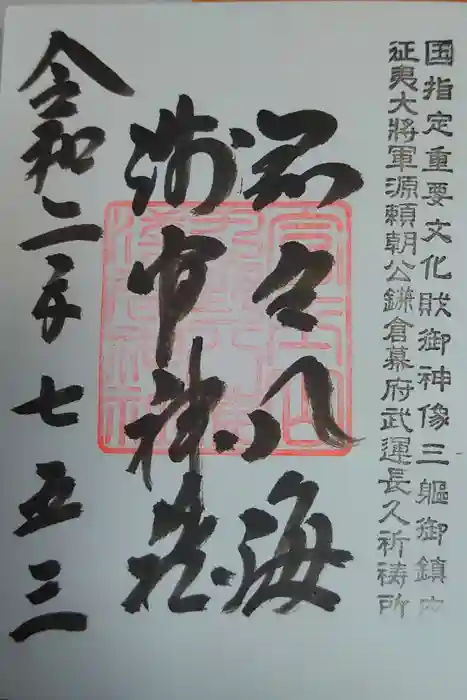 国指定重要文化財御神像三軀御鎮
征夷大將軍源頼朝公鎌倉幕府武運長久祈祷所
忍野八海
浅間神社
令和二年七五三